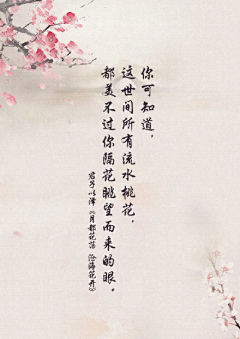 你可知道，
这世间所有流水桃花，
都美不过你隔花眺望而来的眼。
君子以泽《月都花落 沧海花开》